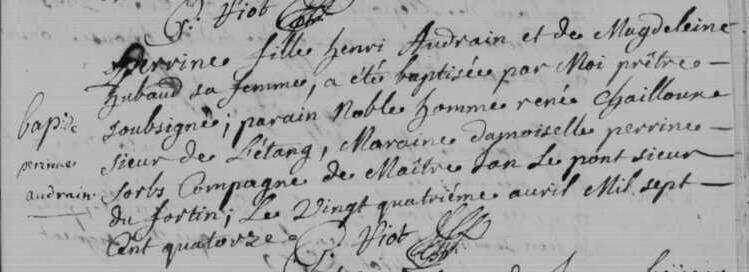 P. Viot
Perrine fille henri Audrain et de Magdeleine
hubaud sa femme, a étés baptisée par Moi prêtre
soubsigné; parain Noble homme rené Chailloux
sieur de L'étang, Maraine damoiselle perrine
sorbs Compagne de Maître Jan Le pont sieur
du fortin; Le Vingt quatriéme avril Mil sept
Cent quatorze
P. Viot
bap: de
perrine
audrain